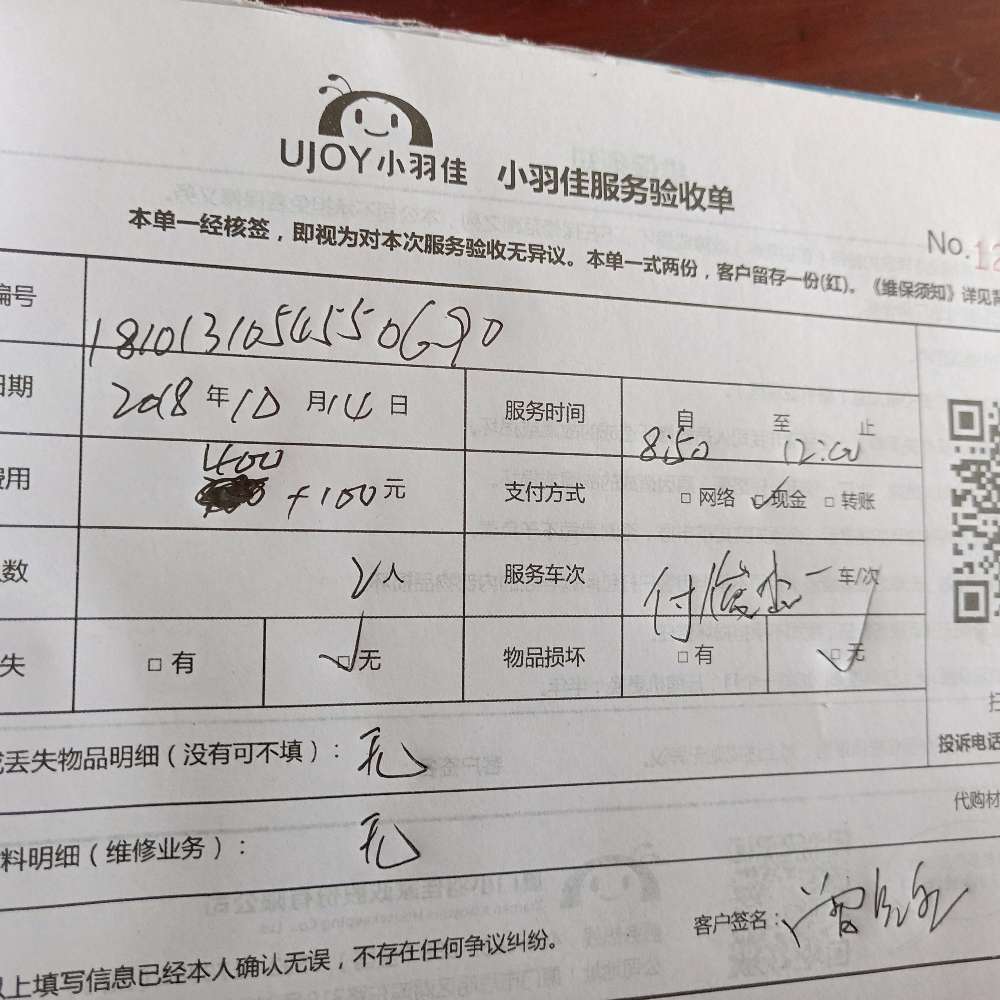 UJOY小羽佳 小羽佳服务验收单
本单一经核签，即视为对本次服务验收无异议。本单一式两份，客户留存一份(红)。《维保须知》详见背
No.12
编号 1810131054550690
日期 2018年10月14日 服务时间 自8:50 至12:00止
费用 400 +100元 支付方式 □网络 ☑现金 □转账
数 2人 服务车次 一车/次
失 □有 ☑无 物品损坏 □有 ☑无
丢失物品明细（没有可不填）：无
投诉电话
料明细（维修业务）：无
代购材
客户签名：曾
上填写信息已经本人确认无误，不存在任何争议纠纷。